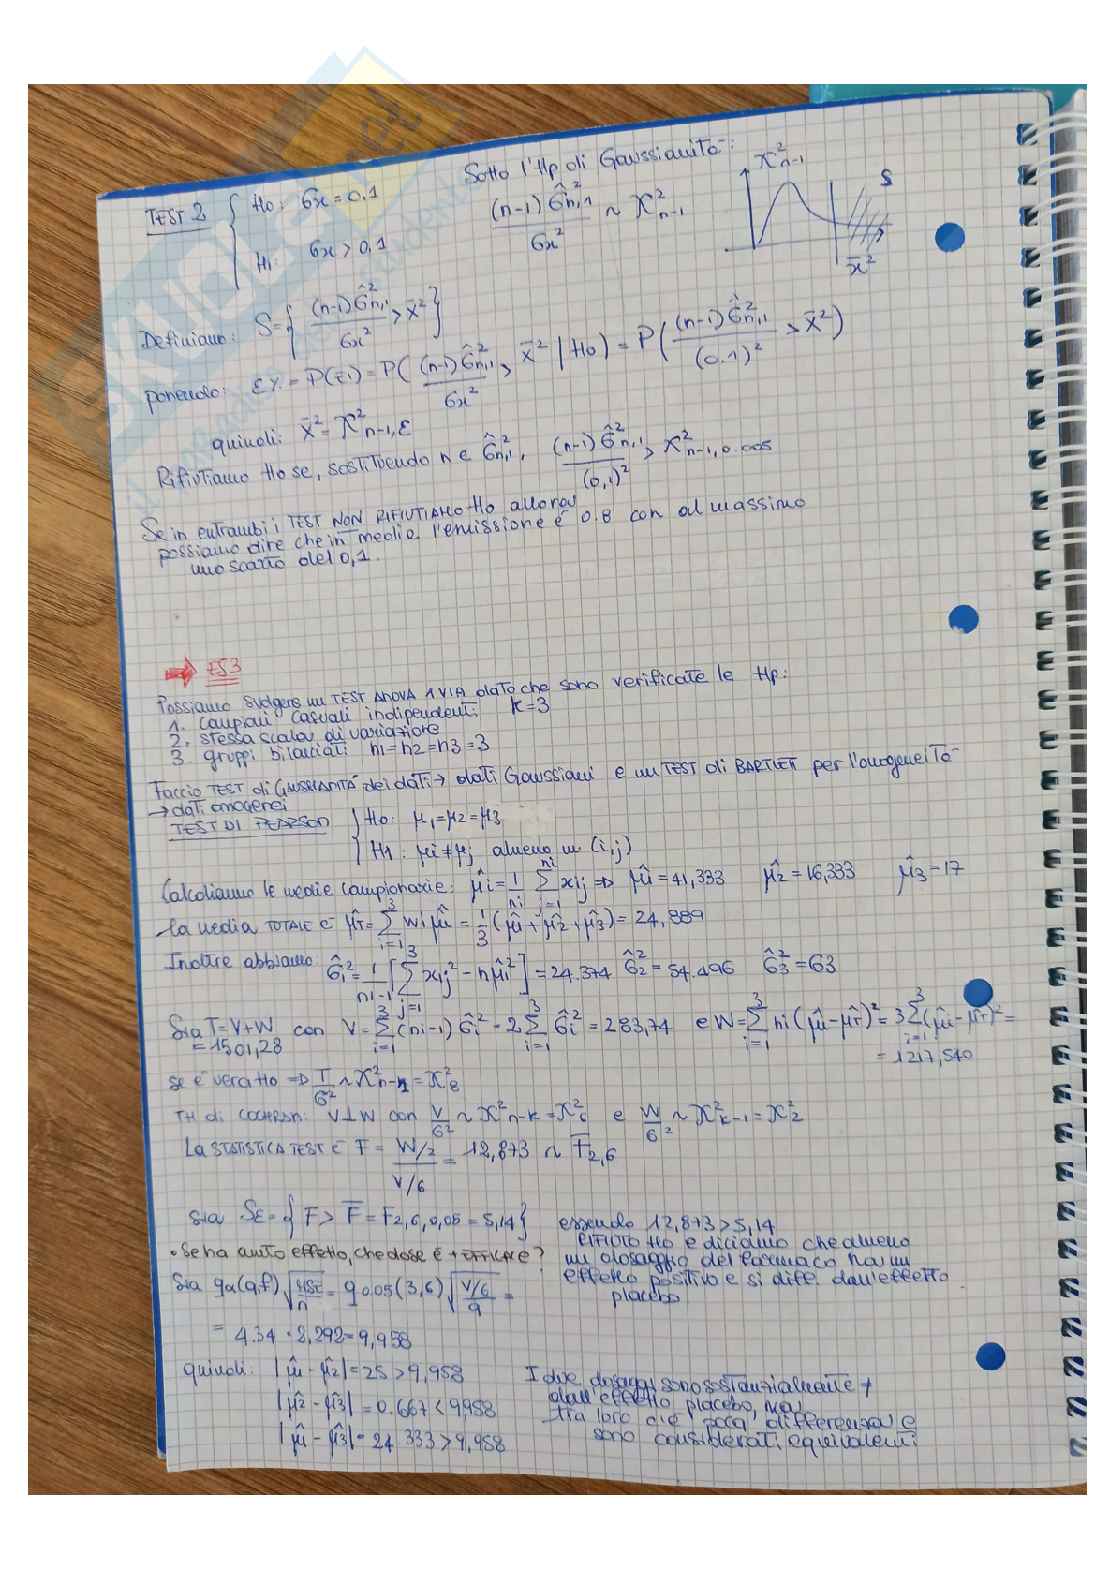 Sotto l'Hp di Gaussianità:
TEST 2 { H0: σx = 0,1
H1: σx > 0,1
(n-1) σ̂²n,1 / σx² ~ χ²n-1
χ²n-1
S
x̄²
Definiamo: S = { (n-1) σ̂²n,1 / σx² > x̄² }
ponendo: ε% = P(E1) = P( (n-1) σ̂²n,1 / σx² > x̄² | H0 ) = P( (n-1) σ̂²n,1 / (0.1)² > x̄² )
quindi: x̄² = χ²n-1,ε
Rifiutiamo H0 se, sostituendo n e σ̂²n,1, (n-1) σ̂²n,1 / (0,1)² > χ²n-1,0.005
Se in entrambi i TEST NON RIFIUTIAMO H0 allora
possiamo dire che in media l'emissione è 0.8 con al massimo
uno scarto del 0,1.
ES3
Possiamo svolgere un TEST ANOVA 1 VIA dato che sono verificate le Hp:
1. campioni casuali indipendenti K=3
2. stessa scala di variazione
3 gruppi bilanciati n1=n2=n3=3
Faccio TEST di GAUSSIANITÀ dei dati → dati Gaussiani e un TEST di BARTLET per l'omogeneità
→ dati omogenei
TEST DI PEARSON { H0: μ1=μ2=μ3
H1: μi≠μj almeno un (i,j)
Calcoliamo le medie campionarie: μ̂i = 1/ni Σ(j=1, ni) xij => μ̂1 = 41,333 μ̂2 = 16,333 μ̂3 = 17
La media TOTALE è μ̂T = Σ(i=1, 3) wi μ̂i = 1/3 (μ̂1 + μ̂2 + μ̂3) = 24,889
Inoltre abbiamo σ̂1² = 1/(n1-1) [ Σ(j=1, 3) x1j² - nμ̂1² ] = 24.374 σ̂2² = 54.496 σ̂3² = 63
Sia T=V+W con V = Σ(i=1, 3) (ni-1) σ̂i² = 2 Σ(i=1, 3) σ̂i² = 283,74 e W = Σ(i=1, 3) ni (μ̂i - μ̂T)² = 3 Σ(i=1, 3) (μ̂i - μ̂T)² =
= 1501,28
= 1217,540
se è vera H0 => T/σ² ~ χ²n-1 = χ²8
TH di COCHRAN: V⊥W con V/σ² ~ χ²n-k = χ²6 e W/σ² ~ χ²k-1 = χ²2
La STATISTICA TEST È F = (W/2) / (V/6) = 12,873 ~ F2,6
Sia Sε = { F > F̄ = F2,6,0,05 = 5,14 } essendo 12,873 > 5,14
RIFIUTO H0 e diciamo che almeno
un dosaggio del farmaco ha un
effetto positivo e si diff. dall'effetto
placebo
• Se ha avuto effetto, che dose è + EFFICACE?
Sia qα(q,f) √(MSE/n) = q0.05(3,6) √((V/6)/9) =
= 4.34 · 2,292 = 9,958
quindi: |μ̂1 - μ̂2| = 25 > 9,958
|μ̂2 - μ̂3| = 0.667 < 9,958
|μ̂1 - μ̂3| = 24 333 > 9,958
I due dosaggi sono sostanzialmente ≠
dall'effetto placebo, ma
tra loro c'è poca differenza e
sono considerati equivalenti